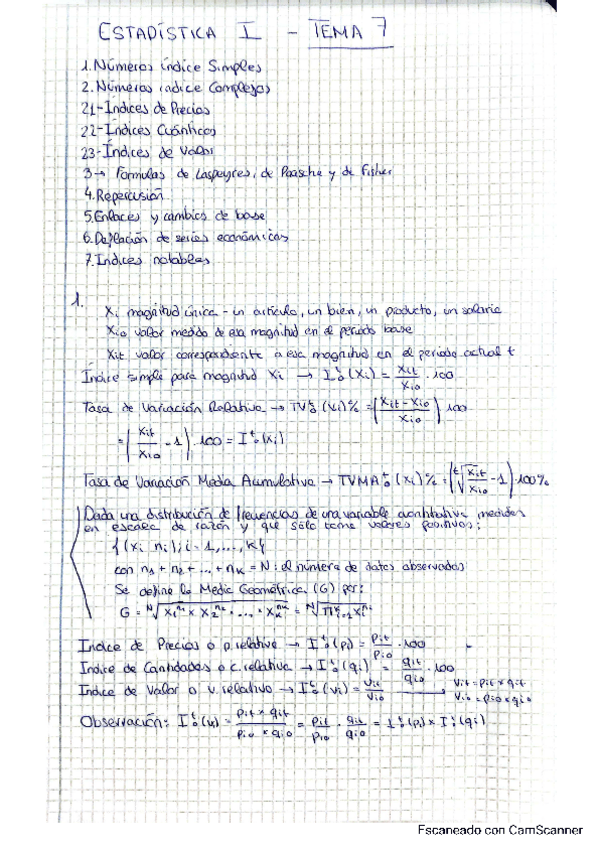 ESTADÍSTICA I - TEMA 7
1. Números índice Simples
2. Números indice Complejos
21-Índices de Precios
22-Índices Cuánticos
23-Índices de Valor
3→ Fórmulas de Laspeyres, de Paasche y de Fisher
4. Repercusión
5. Enlaces y cambios de base
6. Deflación de series económicas
7. Indices notables
1.
Xi magnitud única - un artículo, un bien, un producto, un salario
Xio valor medido de esa magnitud en el periodo base
Xit valor correspondiente a esa magnitud en el periodo actual t
Índice simple para magnitud Xi → I₀ᵗ(Xi) = Xit/Xio · 100
Tasa de Variación Relativa → TV₀ᵗ(Xi)% = (Xit - Xio / Xio) · 100
= (Xit/Xio - 1) · 100 = I₀ᵗ(Xi)
Tasa de Variación Media Acumulativa → TVMA₀ᵗ(Xi)% = (ᵗ√(Xit/Xio) - 1) · 100%
Dada una distribución de frecuencias de una variable cuantitativa medidas
en escala de razón y que sólo tome valores positivos:
{(xi ni); i = 1, ..., K}
con n1 + n2 + ... + nK = N: el número de datos observados
Se define la Media Geométrica (G) por:
G = ᴺ√(X1ⁿ¹ x X2ⁿ² · ... · XKⁿᴷ) = ᴺ√(∏ᴷi=1 Xiⁿⁱ)
Indice de Precios o p. relativo → I₀ᵗ(pi) = pit/pio · 100
Indice de Cantidades o c. relativa → I₀ᵗ(qi) = qit/qio · 100
Indice de Valor o v. relativo → I₀ᵗ(vi) = Vit/Vio → Vit = pit x qit Vio = pio x qio
Observación: I₀ᵗ(vi) = pit x qit / pio x qio = pit/pio · qit/qio = I₀ᵗ(pi) x I₀ᵗ(qi)
Escaneado con CamScanner